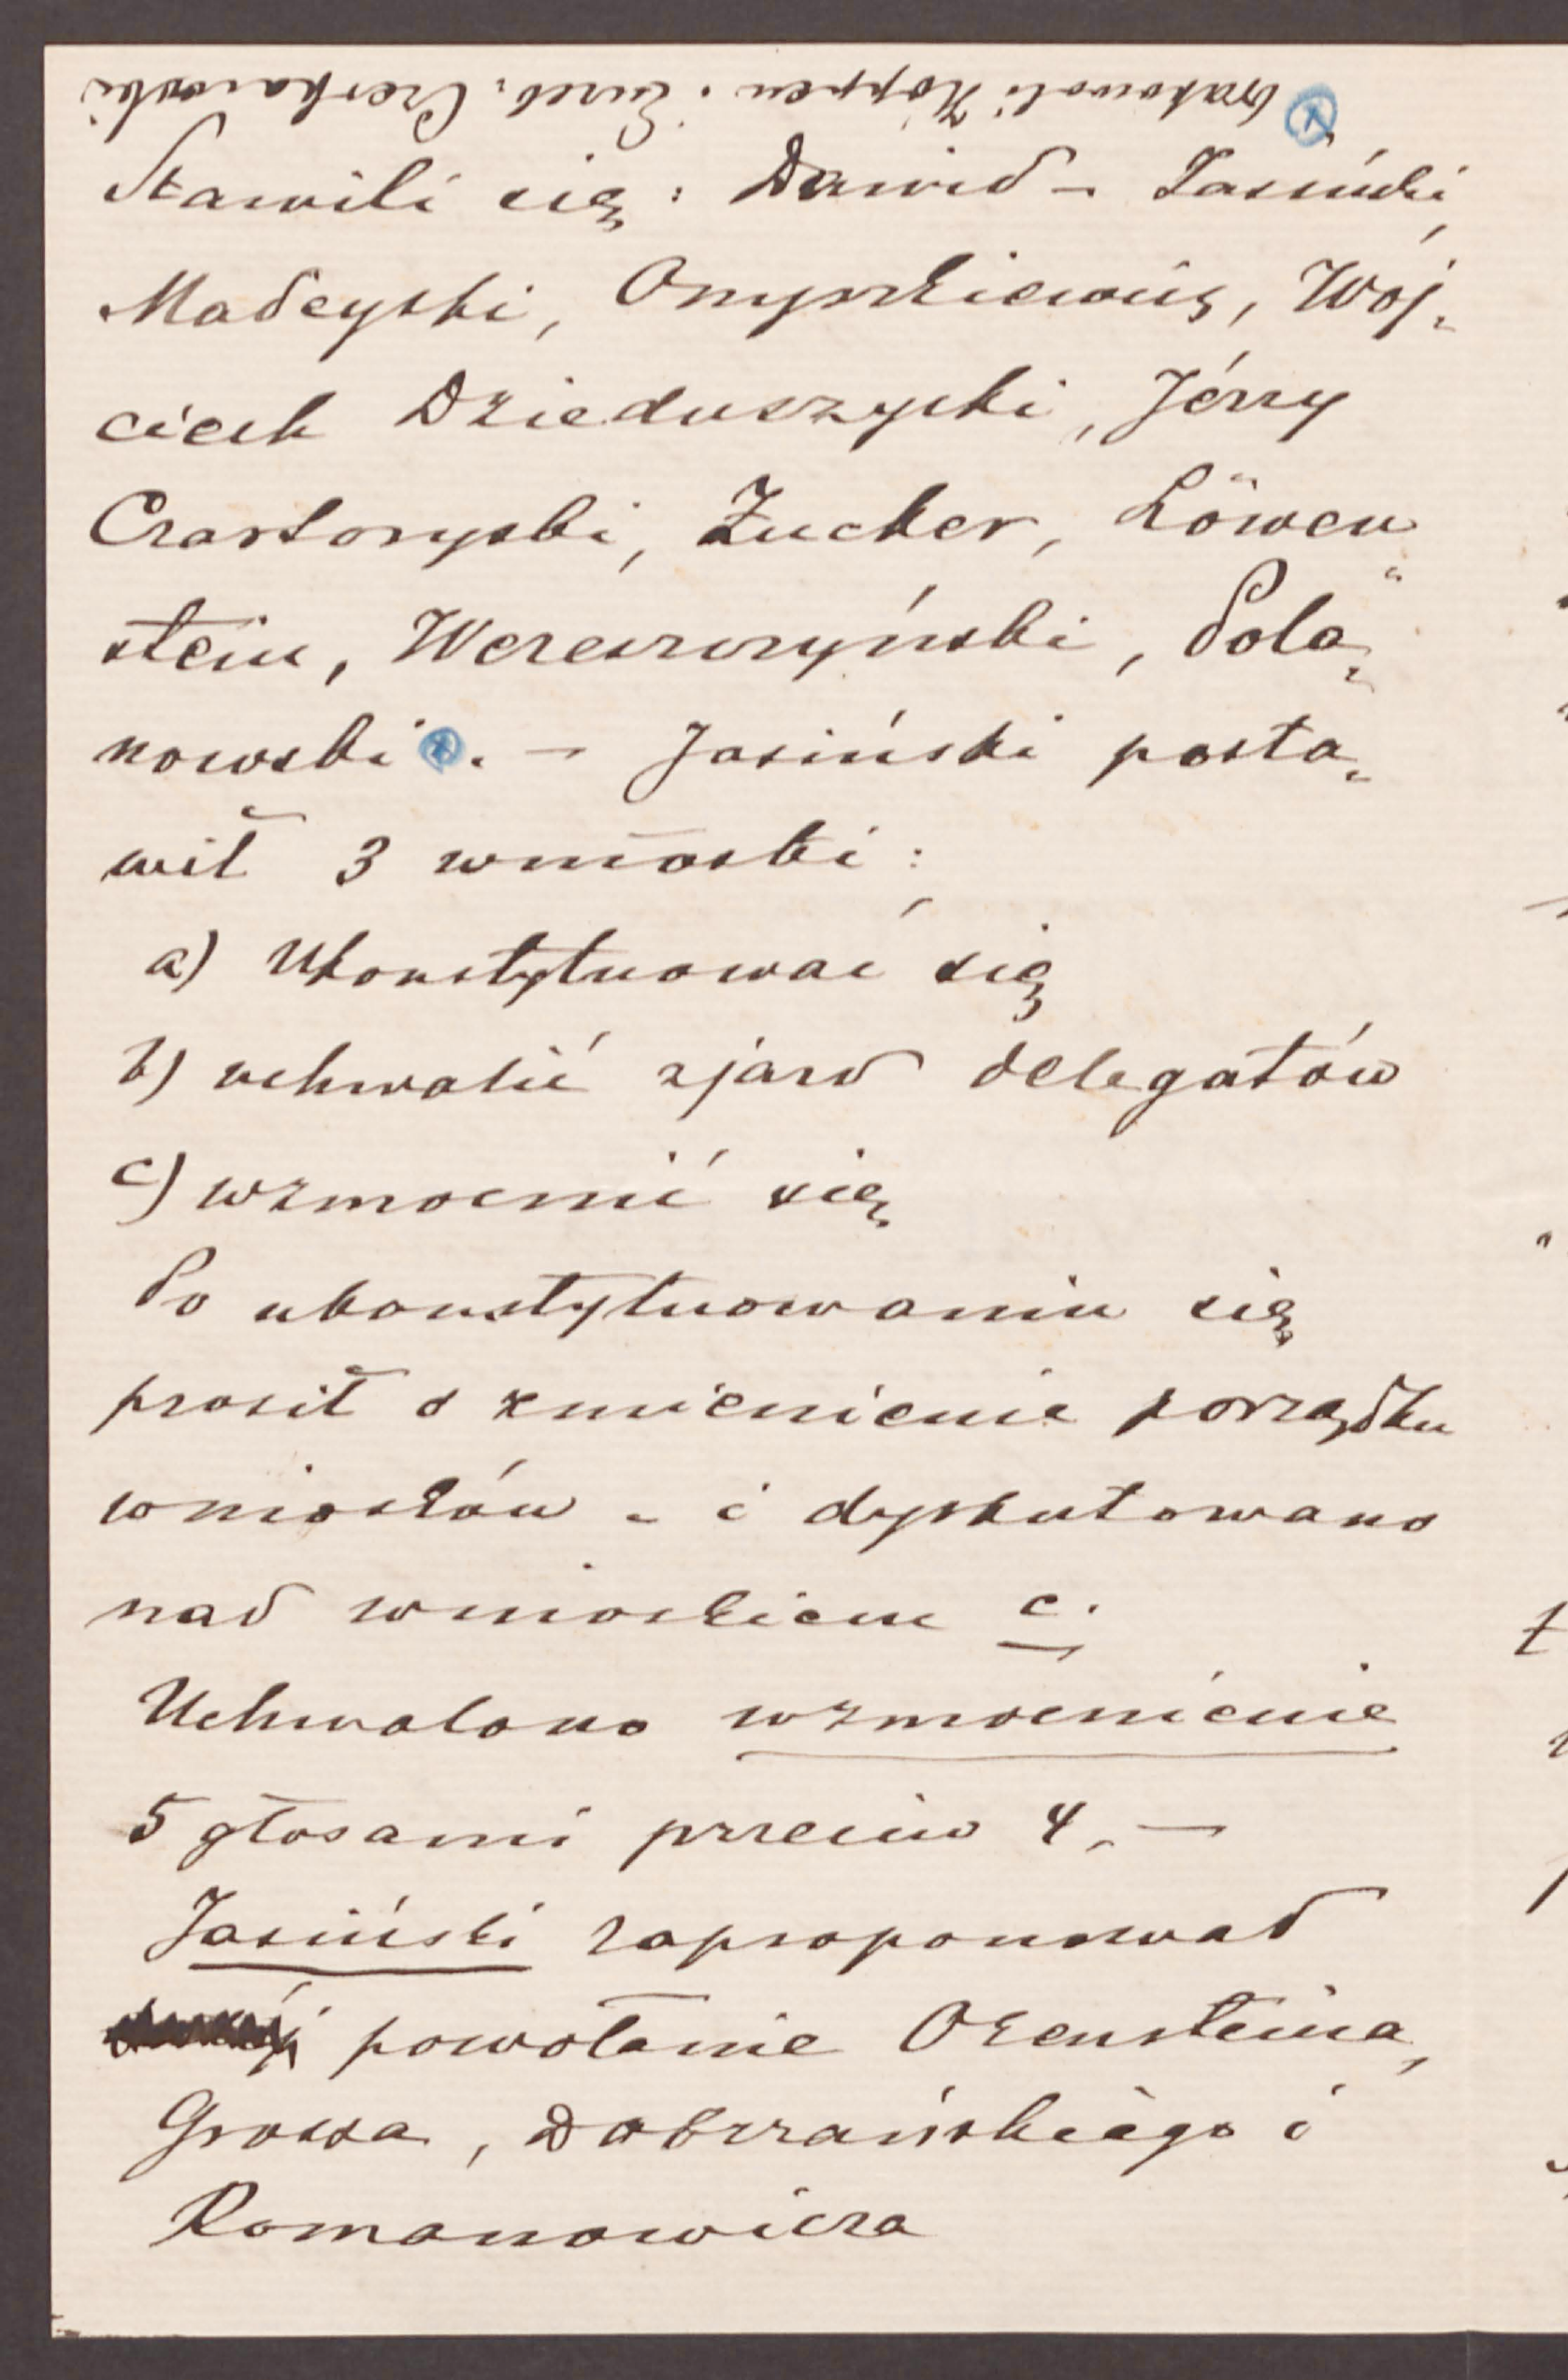 ⓧ brakowali: Hoppen. Euzeb. Czerkawski
Stawili się: Dawid – Jasiński,
Madeyski, Onyszkiewicz, Woj-
ciech Dzieduszycki, Jérzy
Czartoryski, Zucker, Löwen
stein, Wereszczyński, Pola-
nowski ⓧ. – Jasiński posta-
wił 3 wnioski:
a) Ukonstytuować się
b) uchwalić zjazd delegatów
c) wzmocnić się
Po ukonstytuowaniu się
prosił o zmienienie porządku
wniosków – i dyskutowano
nad wnioskiem c.
Uchwalono wzmocnienie
5 głosami przeciw 4. –
Jasiński zaproponował
powołanie Orensteina,
Grossa, Dobrzańskiego i
Romanowicza